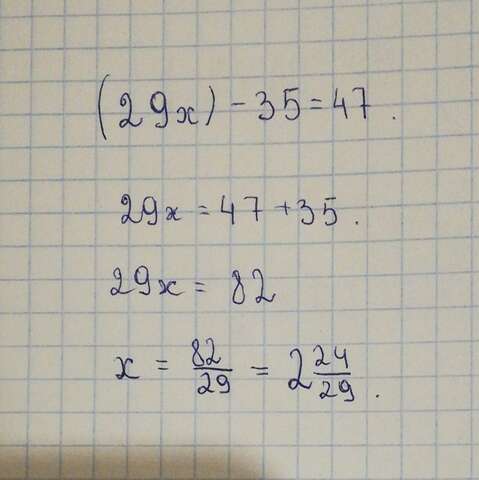 (29x) - 35 = 47.
29x = 47 + 35.
29x = 82
x = 82/29 = 2 24/29.